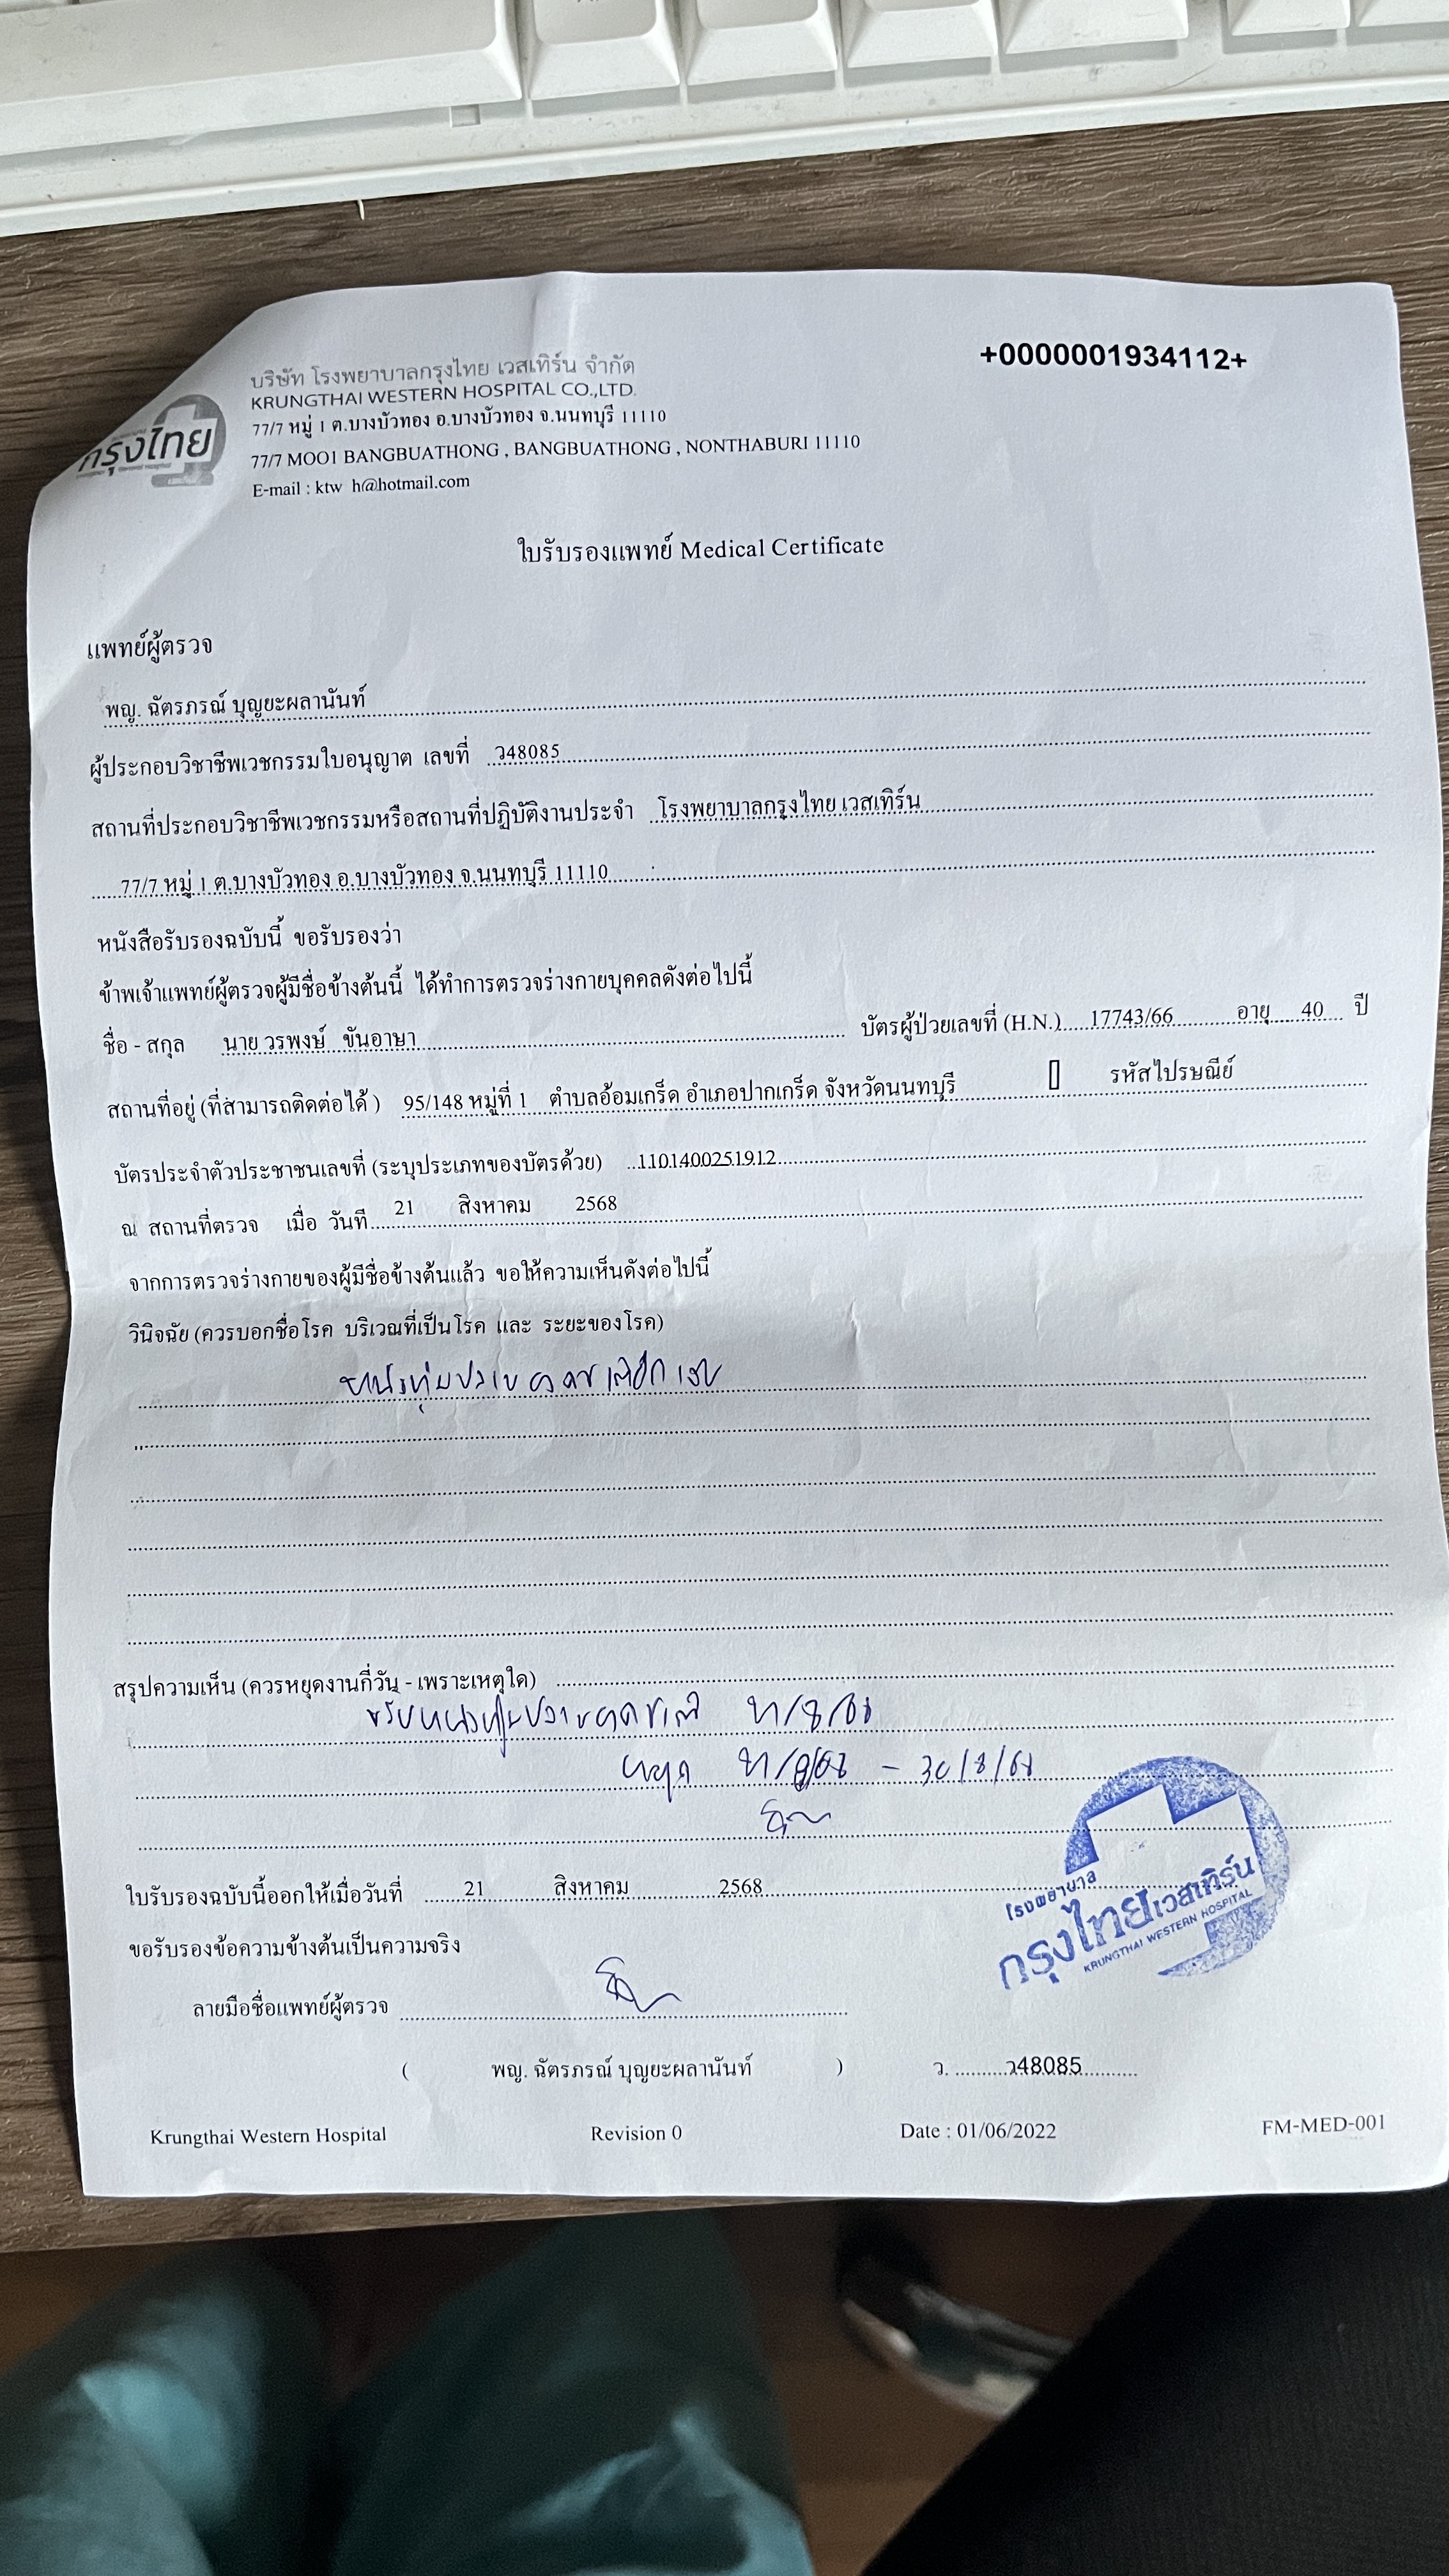 +0000001934112+
กรุงไทย
บริษัท โรงพยาบาลกรุงไทย เวสเทิร์น จำกัด
KRUNGTHAI WESTERN HOSPITAL CO.,LTD.
77/7 หมู่ 1 ต.บางบัวทอง อ.บางบัวทอง จ.นนทบุรี 11110
77/7 MOO1 BANGBUATHONG , BANGBUATHONG , NONTHABURI 11110
E-mail : ktw h@hotmail.com
ใบรับรองแพทย์ Medical Certificate
แพทย์ผู้ตรวจ
พญ. ฉัตรภรณ์ บุญยะผลานันท์
ผู้ประกอบวิชาชีพเวชกรรมใบอนุญาต เลขที่ ว48085
สถานที่ประกอบวิชาชีพเวชกรรมหรือสถานที่ปฏิบัติงานประจำ โรงพยาบาลกรุงไทย เวสเทิร์น
77/7 หมู่ 1 ต.บางบัวทอง อ.บางบัวทอง จ.นนทบุรี 11110
หนังสือรับรองฉบับนี้ ขอรับรองว่า
ข้าพเจ้าแพทย์ผู้ตรวจผู้มีชื่อข้างต้นนี้ ได้ทำการตรวจร่างกายบุคคลดังต่อไปนี้
ชื่อ - สกุล นาย วรพงษ์ ขันอาษา บัตรผู้ป่วยเลขที่ (H.N.) 17743/66 อายุ 40 ปี
สถานที่อยู่ (ที่สามารถติดต่อได้ ) 95/148 หมู่ที่ 1 ตำบลอ้อมเกร็ด อำเภอปากเกร็ด จังหวัดนนทบุรี รหัสไปรษณีย์
บัตรประจำตัวประชาชนเลขที่ (ระบุประเภทของบัตรด้วย) 1101400251912
ณ สถานที่ตรวจ เมื่อ วันที่ 21 สิงหาคม 2568
จากการตรวจร่างกายของผู้มีชื่อข้างต้นแล้ว ขอให้ความเห็นดังต่อไปนี้
วินิจฉัย (ควรบอกชื่อโรค บริเวณที่เป็นโรค และ ระยะของโรค)
หนังหุ้มปลาย
สรุปความเห็น (ควรหยุดงานกี่วัน - เพราะเหตุใด)
หยุด 21/8/68 - 30/8/68
ใบรับรองฉบับนี้ออกให้เมื่อวันที่ 21 สิงหาคม 2568
ขอรับรองข้อความข้างต้นเป็นความจริง
โรงพยาบาล
กรุงไทยเวสเทิร์น
KRUNGTHAI WESTERN HOSPITAL
ลายมือชื่อแพทย์ผู้ตรวจ
( พญ. ฉัตรภรณ์ บุญยะผลานันท์ ) ว. ว48085
Krungthai Western Hospital Revision 0 Date : 01/06/2022 FM-MED-001